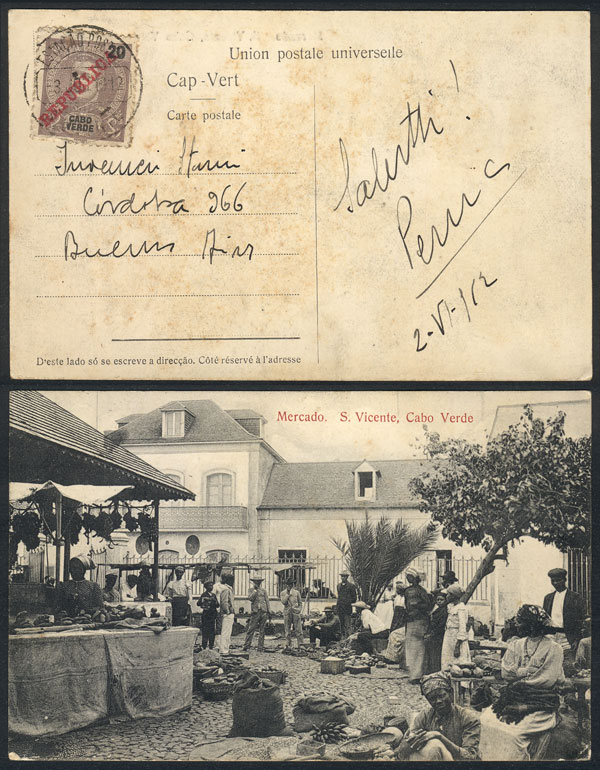 Union postale universelle
Cap-Vert
Carte postale
20
REPUBLICA
CABO VERDE
Córdoba 966
Buenos Aires
Salutti!
2-VI-912
D'este lado só se escreve a direcção. Côté réservé à l'adresse
Mercado. S. Vicente, Cabo Verde